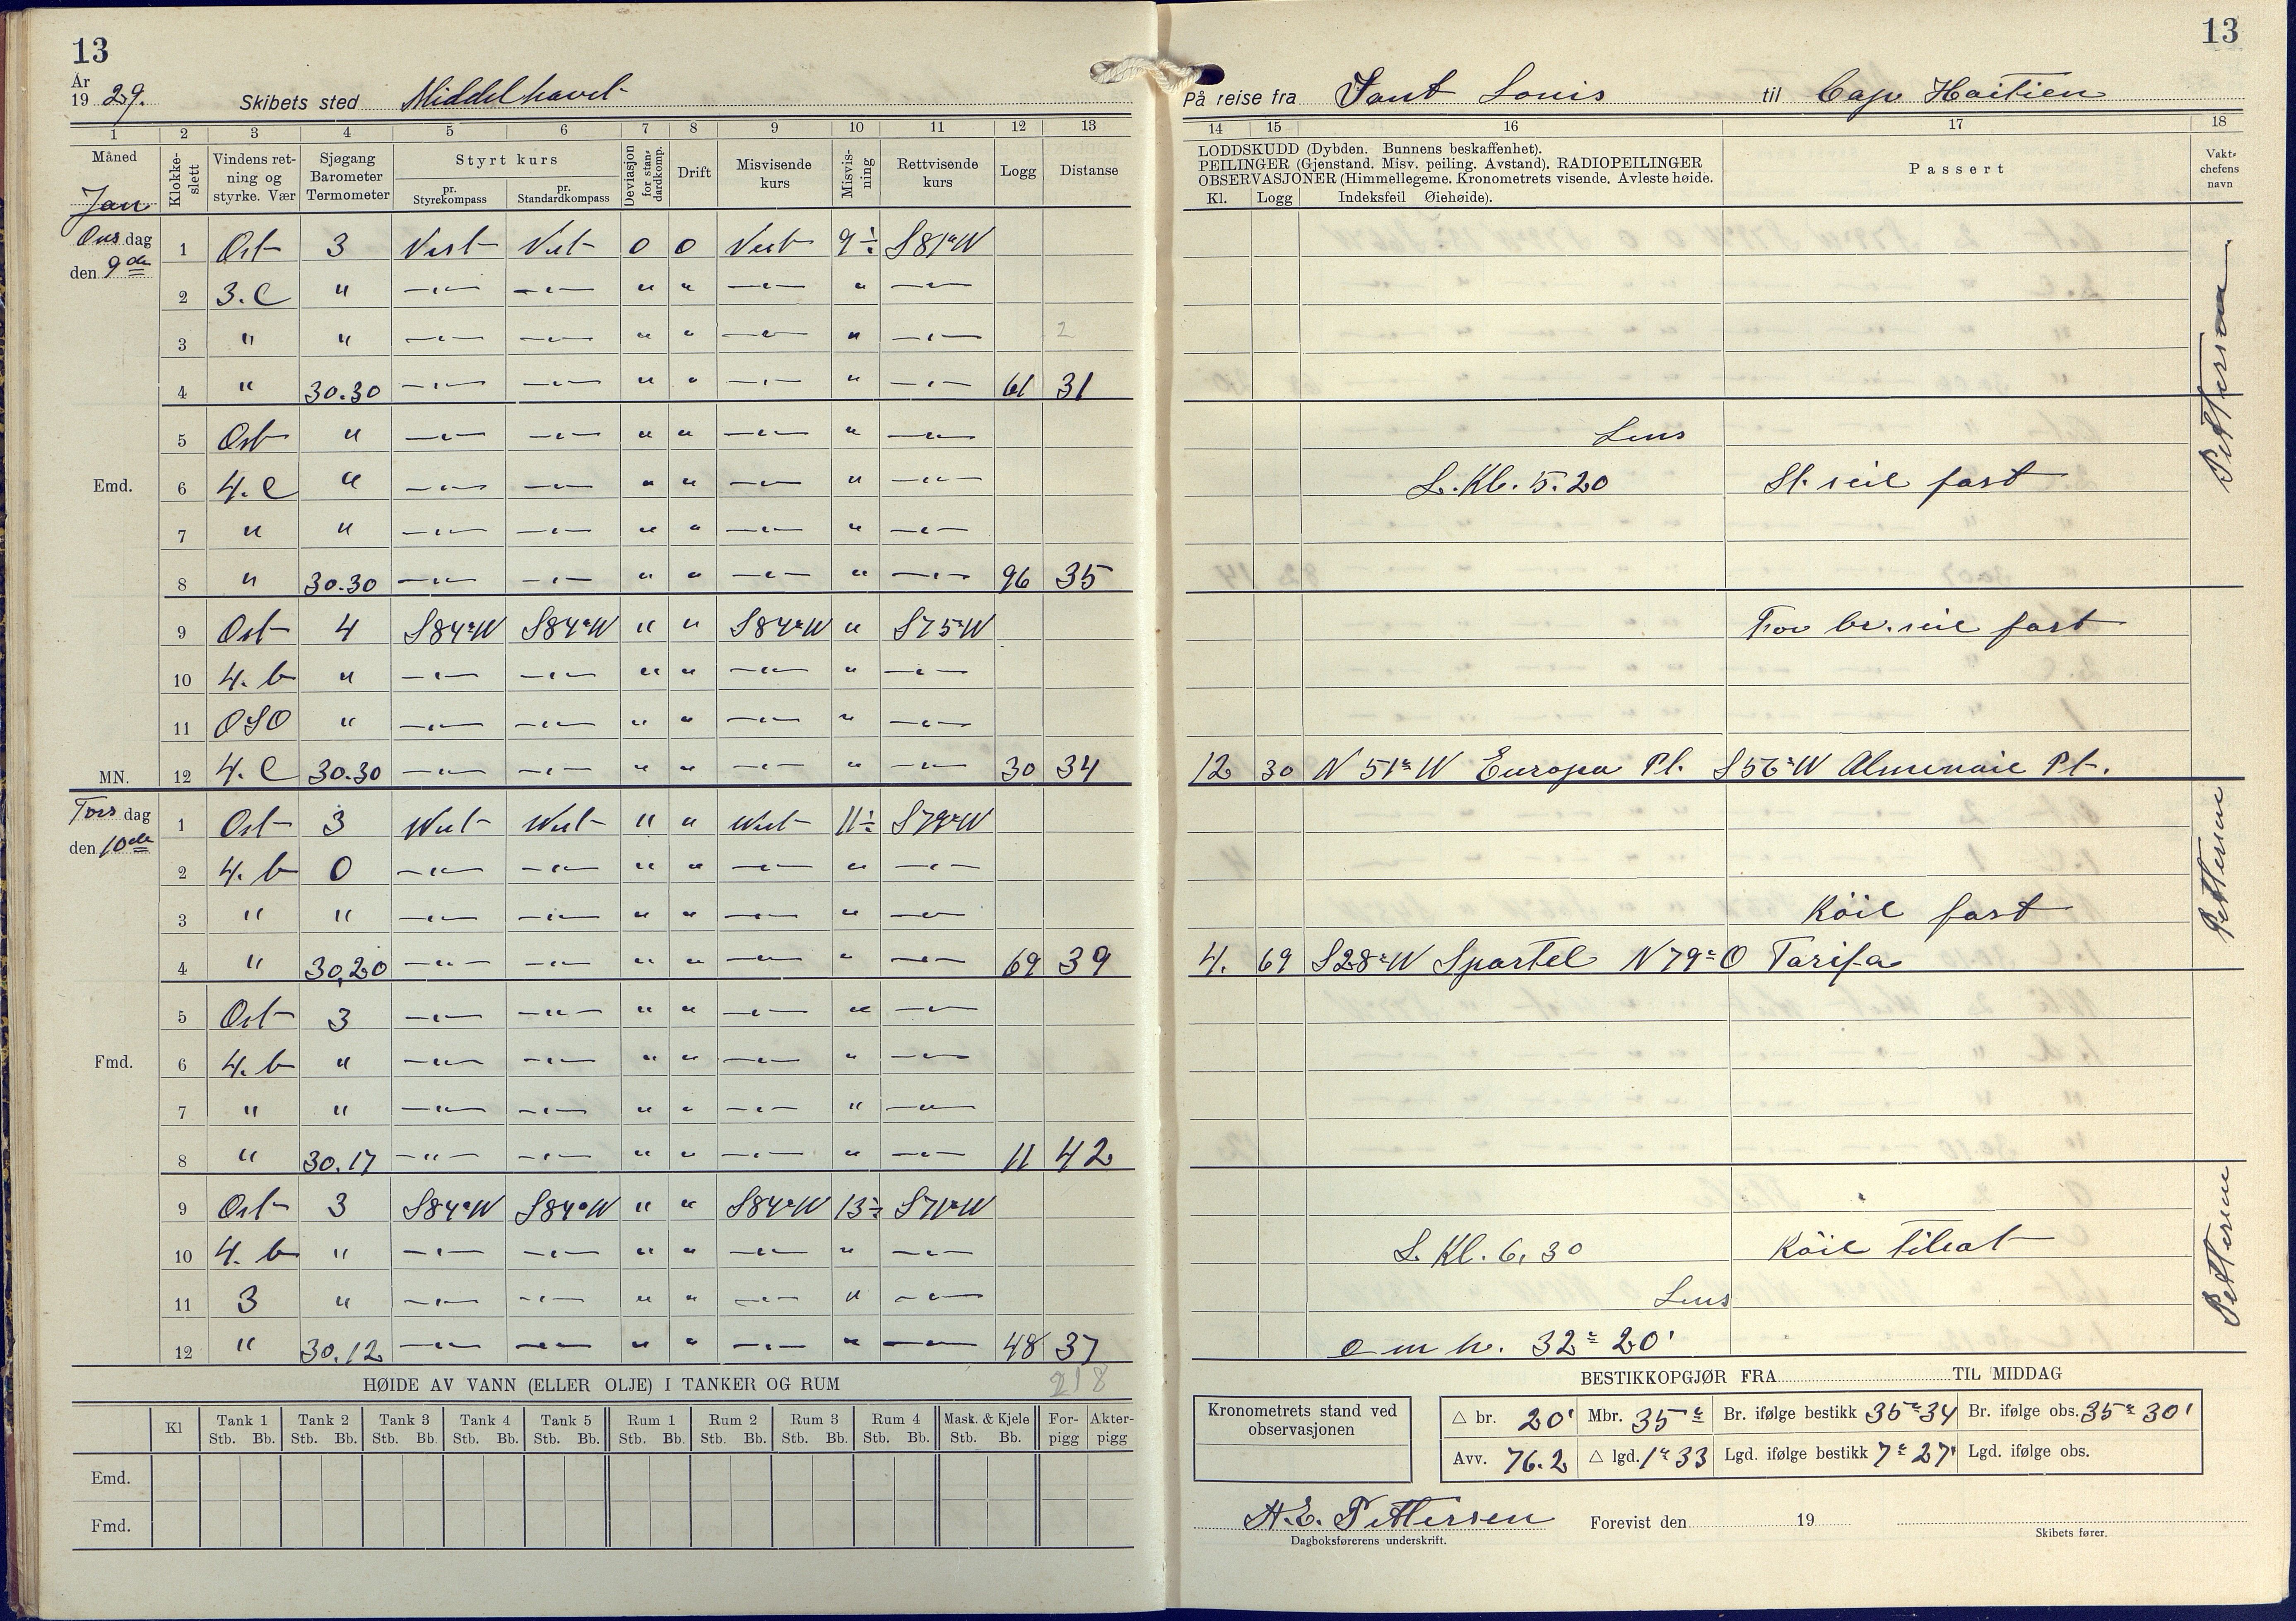 13
13
År
1929. Skibets sted Middelhavet
På reise fra Sant Louis til Cap Haitien
1 2 3 4 5 6 7 8 9 10 11 12 13
14 15 16 17 18
Måned Jan
Klokkeslett
Vindens retning og styrke. Vær
Sjøgang Barometer Termometer
Styrt kurs
pr. Styrekompass
pr. Standardkompass
Deviasjon for standardkomp.
Drift
Misvisende kurs
Misvisning
Rettvisende kurs
Logg
Distanse
LODDSKUDD (Dybden. Bunnens beskaffenhet).
PEILINGER (Gjenstand. Misv. peiling. Avstand). RADIOPEILINGER
OBSERVASJONER (Himmellegeme. Kronometrets visende. Avleste høide.
Kl. Logg Indeksfeil Øiehøide).
Passert
Vaktchefens navn
Onsdag den 9de
1 Ost 3 Vest Vest 0 0 Vest 9 ÷ S 81° W
2 3. C " —"— —"— " " —"— " —"—
3 " " —"— —"— " " —"— " —"— 2
4 " 30.30 —"— —"— " " —"— " —"— 61 31
5 Ost " —"— —"— " " —"— " —"—
Lens
Emd.
6 4. C " —"— —"— " " —"— " —"— L. Kl. 5.20 St. seil fast
7 " " —"— —"— " " —"— " —"—
8 " 30.30 —"— —"— " " —"— " —"— 96 35
Pettersen
9 Ost 4 S84°W S84°W " " S84°W " S75°W For br. seil fast
10 4. b " —"— —"— " " —"— " —"—
11 OSO " —"— —"— " " —"— " —"—
MN. 12 4. C 30.30 —"— —"— " " —"— " —"— 30 34 12 30 N 51° W Europa Pt. S 56° W Almenaie Pt.
Torsdag den 10de
1 Ost 3 West West " " West 11 ÷ S 79° W
2 4. b 0 —"— —"— " " —"— " —"—
3 " " —"— —"— " " —"— " —"— Röil fast
4 " 30,20 —"— —"— " " —"— " —"— 69 39 4. 69 S28°W Spartel N 79° O Tarifa
Pettersen
5 Ost 3 —"— —"— " " —"— " —"—
Fmd.
6 4. b " —"— —"— " " —"— " —"—
7 " " —"— —"— " " —"— " —"—
8 " 30.17 —"— —"— " " —"— " —"— 11 42
9 Ost 3 S84°W S84°W " " S84°W 13 ÷ S71°W
10 4. b " —"— —"— " " —"— " —"— L. Kl. 6.30 Röil tilsat
11 3 " —"— —"— " " —"— " —"— Lens
12 " 30.12 —"— —"— " " —"— " —"— 48 37 o m h. 32° 20'
Pettersen
218
HØIDE AV VANN (ELLER OLJE) I TANKER OG RUM
Kl
Tank 1 Tank 2 Tank 3 Tank 4 Tank 5 Rum 1 Rum 2 Rum 3 Rum 4 Mask. & Kjele Forpigg Akterpigg
Stb. Bb. Stb. Bb. Stb. Bb. Stb. Bb. Stb. Bb. Stb. Bb. Stb. Bb. Stb. Bb. Stb. Bb. Stb. Bb.
Emd.
Fmd.
BESTIKKOPGJØR FRA TIL MIDDAG
Kronometrets stand ved observasjonen
△ br. 20' Mbr. 35° Br. ifølge bestikk 35° 34 Br. ifølge obs. 35° 30'
Avv. 76.2 △ lgd. 1° 33 Lgd. ifølge bestikk 7° 27' Lgd. ifølge obs.
H.E. Pettersen Forevist den 19
Dagboksførerens underskrift. Skibets fører.